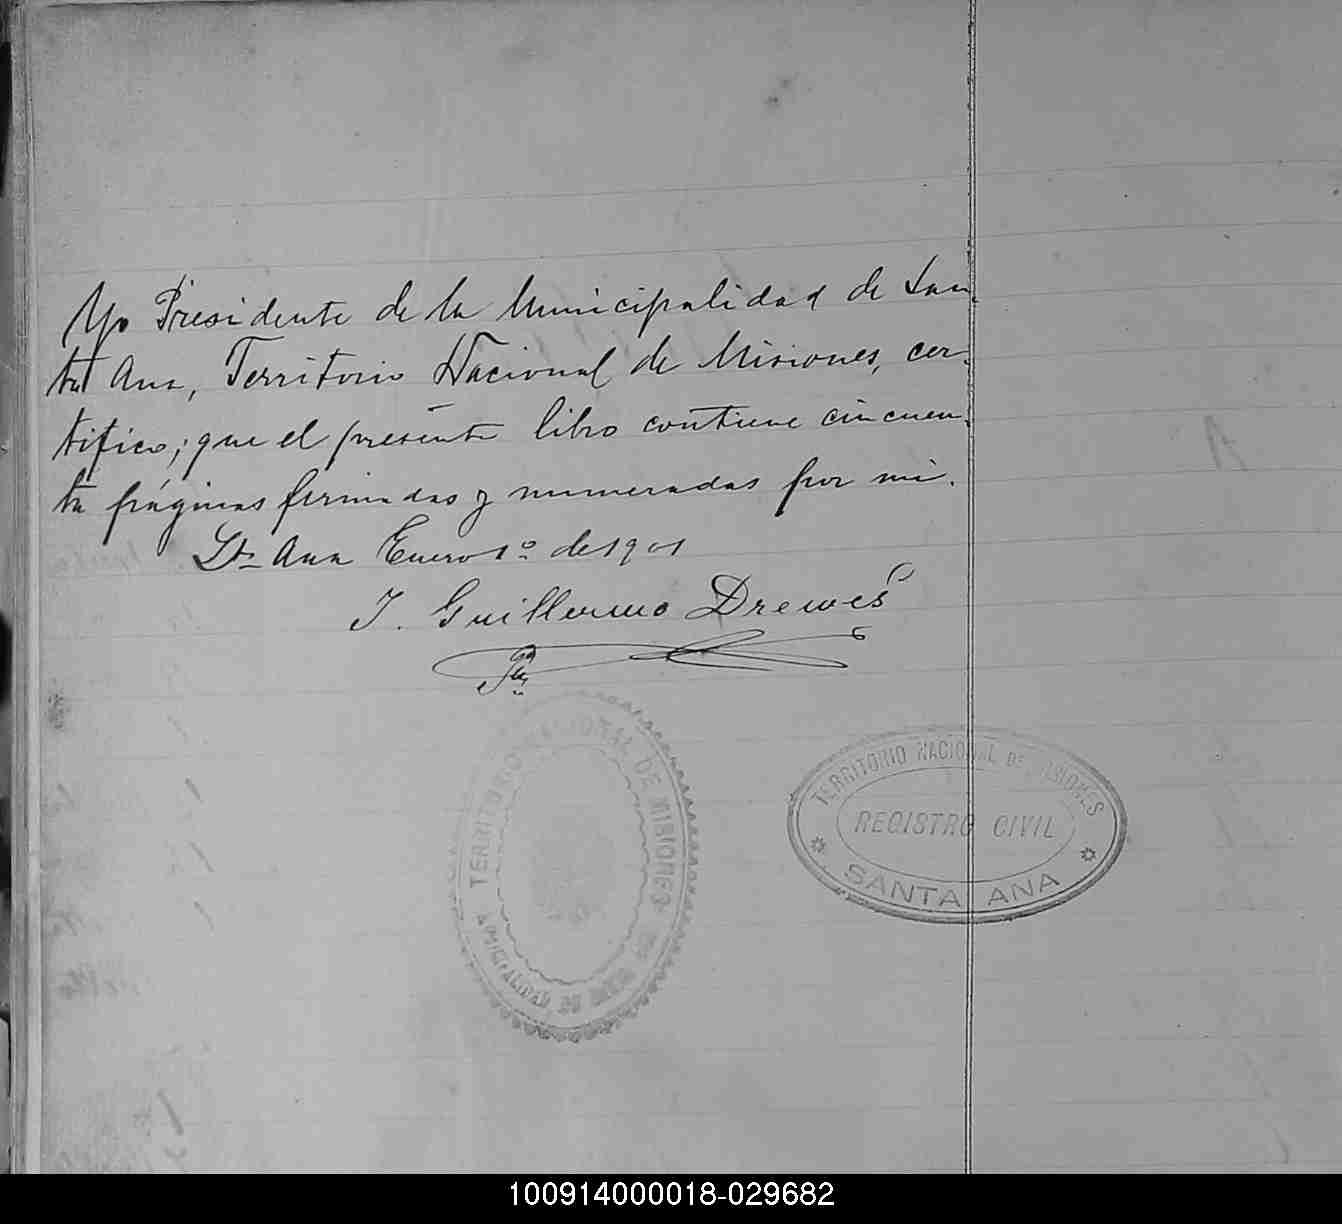 Yo Presidente de la Municipalidad de San
ta Ana, Territorio Nacional de Misiones, cer-
tifico; que el presente libro contiene cincuen-
ta páginas firmadas y numeradas por mi.
Sta Ana Enero 1º de 1901
J. Guillermo Drewes
TERRITORIO NACIONAL DE MISIONES
MUNICIPALIDAD DE SANTA ANA
TERRITORIO NACIONAL DE MISIONES
REGISTRO CIVIL
SANTA ANA
100914000018-029682